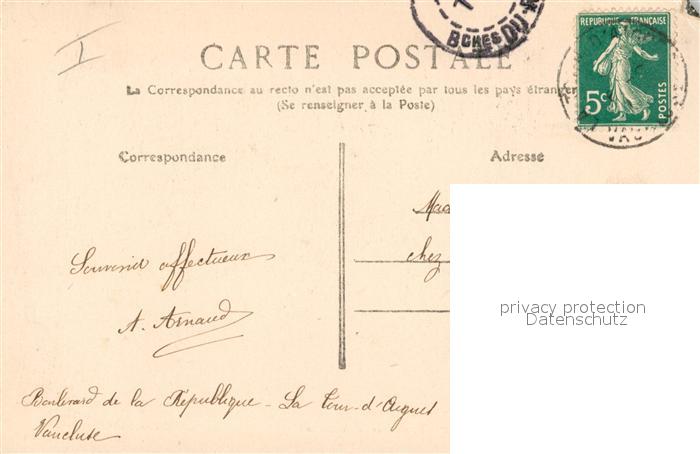 I
BCHES DU R
REPUBLIQUE FRANÇAISE
5c
POSTES
D'AI
VAUC
CARTE POSTALE
La Correspondance au recto n'est pas acceptée par tous les pays étranger
(Se renseigner à la Poste)
Correspondance
Adresse
Mad
chez
Souvenir affectueux
A. Arnaud
privacy protection
Datenschutz
Boulevard de la République - La Tour-d'Aigues
Vaucluse